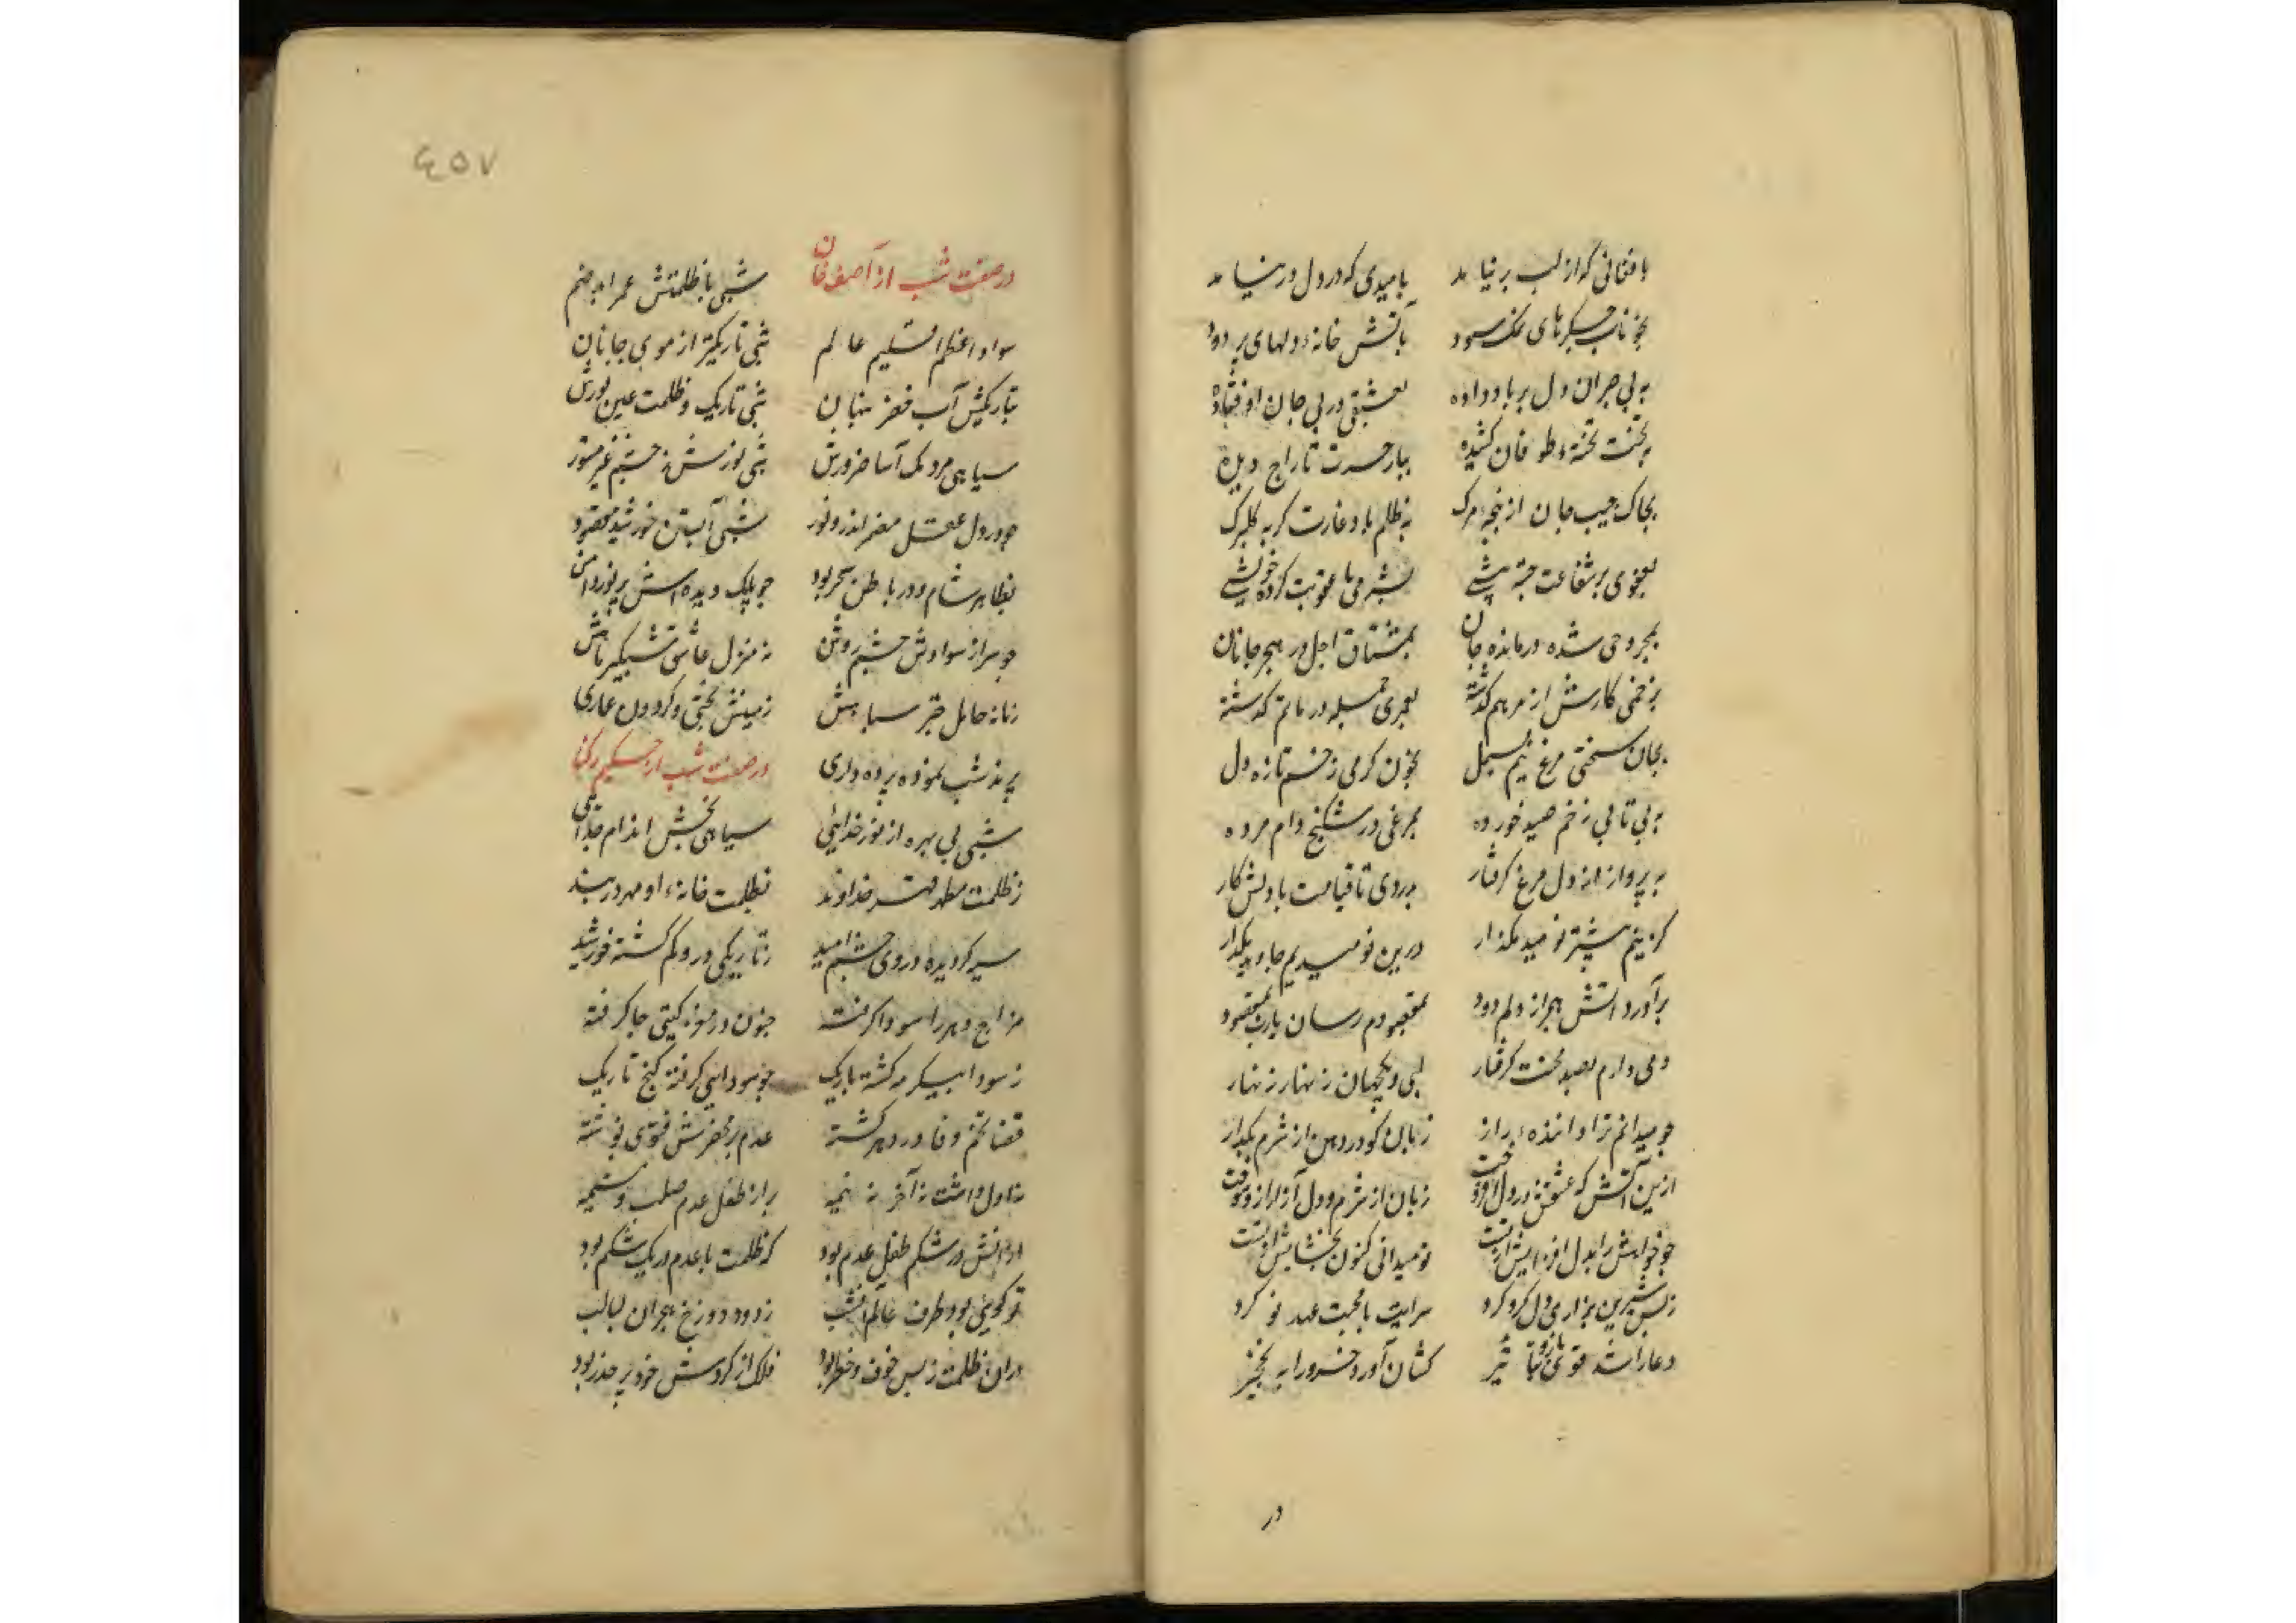 بافغانی که از لب بر نیامد بامیدی که در دل در نیامد
بخوناب جگرهای نمک سود بآتش خانه دلهای پر دود
به بی صبران دل بر باد داده بعشقی در پی جان اوفتاده
به تخته طوفان کشیده ببار حسرت تاراج دیده
بچاک جیب جان از پنجه مرک به ظلم باد و غارت کر به کلبرک
بعفوی بر شفاعت جسته پیشی بشرمی با عقوبت کرده خویشی
بمجروحی شده درمانده جان بمشتاق اجل در هجر جانان
بزخمی کارش از مرهم گذشته بعمری جمله در ماتم گذشته
بجان سختی مرغ نیم بسمل بخون کرمی زخم تازه دل
به بی تابی زخم صید خورده بمرغی در شکنج دام مرده
به پرواز از دل مرغ گرفتار بدردی تا قیامت با دلش کار
کزینم بیشتر نومید مکذار درین نومیدیم جاوید مکذار
برآورد آتش هجر از دلم دود بمقصودم رسان یارب بمقصود
دمی دارم بصد محنت گرفتار لبی و یکجهان زنهار زنهار
چو میدانم ترا داننده راز زبان کو در دهن از شرم بکداز
ازین آتش که عشقش در دل افروخت زبان از شرم و دل از راز
چو خواهش را بدل افزایش از تست نومیدانی کنون بخشایش از تست
زبس شیرین بزاری دل کرو کرد سرایت با محبت عهد نو کرد
دعا را شد قوی بازو بتاثیر کشان آورد خسرو را به نخجیر
در
٤٥٧
در صفت شب از آصف خان شبی با ظلمتش عمر
سواد اعظم اقلیم عالم شبی تاریکتر از موی جانان
بتاریکیش آب خضر پنهان شبی تاریک و ظلمت عین نورش
سیاهی مردمک آسا ضرورش شبی نورش ز چشم غیر مستور
چو در دل عقل مضمر اندرو نور شبی آبستن خورشید مقصود
بظاهر شام و در باطن سحر بود چو پلک دیده اش پر نور دامن
چو سر از سوادش چشم روشن نه منزل عاشق شبگیر
زمانه حامل سیاهش زمینش بختی و کردون عماری
پرند شب نموده پرده داری در صفت شب از حکیم رکنا
شبی بی بهره از نور خدایی سیاهی بخش اندام جدایی
ز ظلمت مظهر قهر خداوند بظلمت خانه او مهر دربند
سیه کردیده در وی چشم امید ز تاریکی درو کم کشته خورشید
مزاج دهر را سودا کرفته جنون در مغز کیتی جا کرفته
ز سودا پیکر مه کشته باریک چو سودایی کرفته کنج تاریک
قضا تخم وفا در دهر کشته عدم بر محضرش فتوی نوشته
نه اول داشت نه آخر نه نیمه برادر طفل عدم صلب و مشیمه
درانش در شکم طفل عدم بود که ظلمت با عدم در یک شکم بود
تو کویی بود ظرف عالم آنشب ز دود دوزخ هجران لبالب
دران ظلمت زبس خوف و خطر بود فلک از کردش خود پر حذر بود